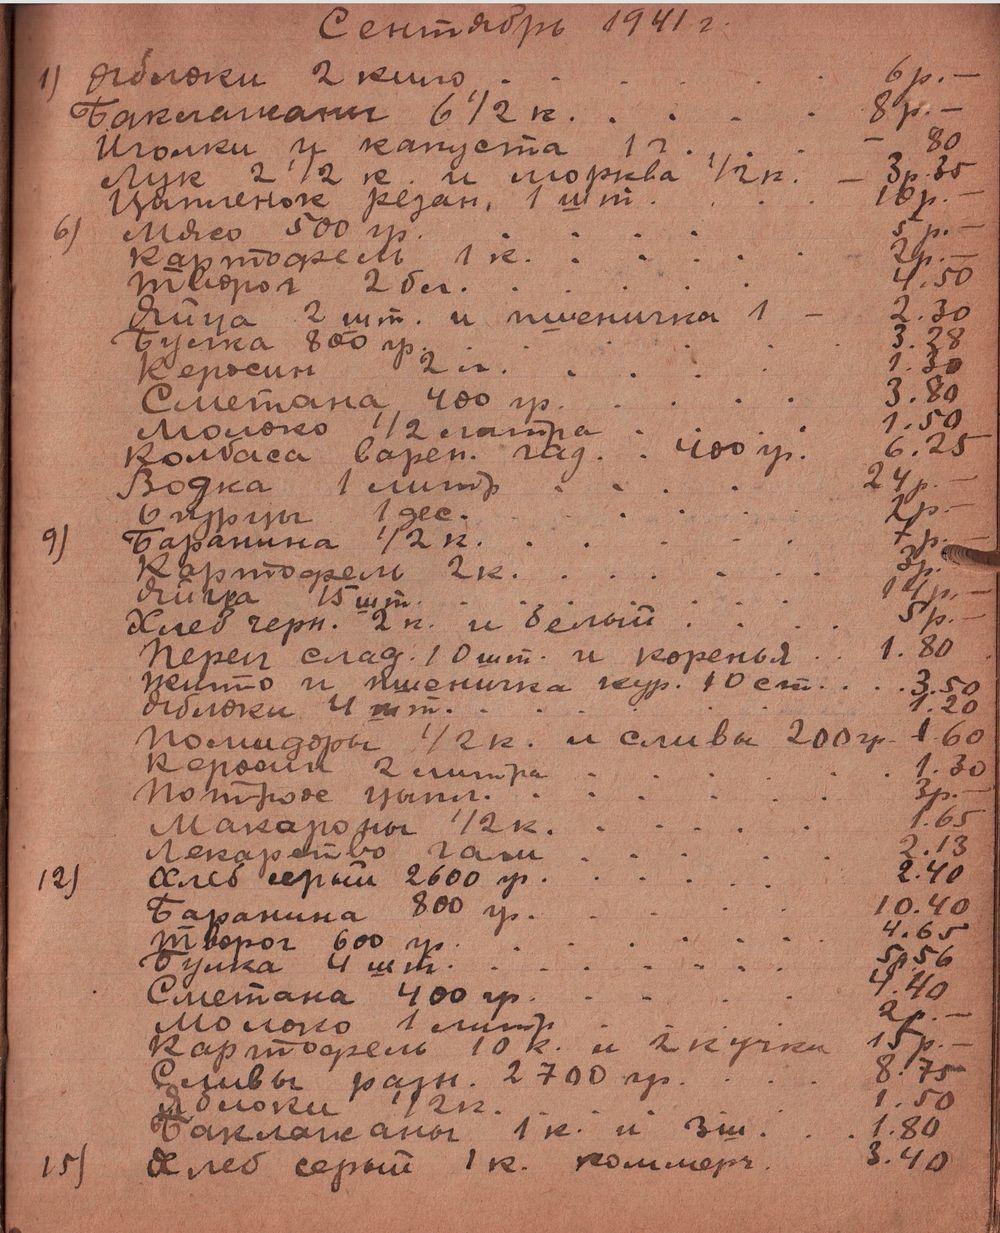 Сентябрь 1941 г.
1) Яблоки 2 кило . . . . . 6 р. —
Баклажаны 6 1/2 к. . . . . 8 р. —
Иголки и капуста 1 г. . . — 80
Лук 2 1/2 к. и морква 1/2 к. — 3р.35
Ципленок резан, 1 шт. . . . 10р. —
6) Мясо 500 гр. . . . . 5 р. —
Картофель 1 к. . . . . . 2р. —
Творог 2 бл. . . . . . 4.50
Яйца 2 шт. и пшеничка 1 — 2.30
Булка 800 гр. . . . . . 3.28
Керосин 2 л. . . . . 1.30
Сметана 400 гр. . . . . 3.80
Молоко 1/2 литра . . . . 1.50
Колбаса варен. гад. . 400 гр. 6.25
Водка 1 литр . . . . 24р. —
Бицрцы 1 дес. . . . . . 2р. —
9) Баранина 1/2 к. . . . . . 7 р. —
Картофель 2 к. . . . . . 3р. —
Яйца 15 шт. . . . . . 14р. —
Хлеб черн. 2 к. и белый . . . . 5 р. —
Перец слад. 10 шт. и коренья . . 1.80
Жито и пшеничка кур. 10 ст. . . . 3.50
Яблоки 4 шт. . . . . . 1.20
Помидоры 1/2 к. и сливы 200 гр. 1.60
Керосин 2 литра . . . . . 1.30
Потрох цыпл. . . . . . 3р. —
Макароны 1/2 к. . . . . . 1.65
Лекарство . . . . . 2.13
12) Хлеб серый 2600 гр. . . . . 2.40
Баранина 800 гр. . . . . 10.40
Творог 600 гр. . . . . . 4.65
Булка 4 шт. . . . . . 5р56
Сметана 400 гр. . . . . 4.40
Молоко 1 литр . . . . 2р. —
Картофель 10 к. и 2 кучки 15р. —
Сливы разн. 2700 гр. . . . . 8.75
Яблоки 1/2 к. . . . . . 1.50
Баклажаны 1 к. и 3 ш. . . . 1.80
15) Хлеб серый 1 к. коммерч. . 3.40